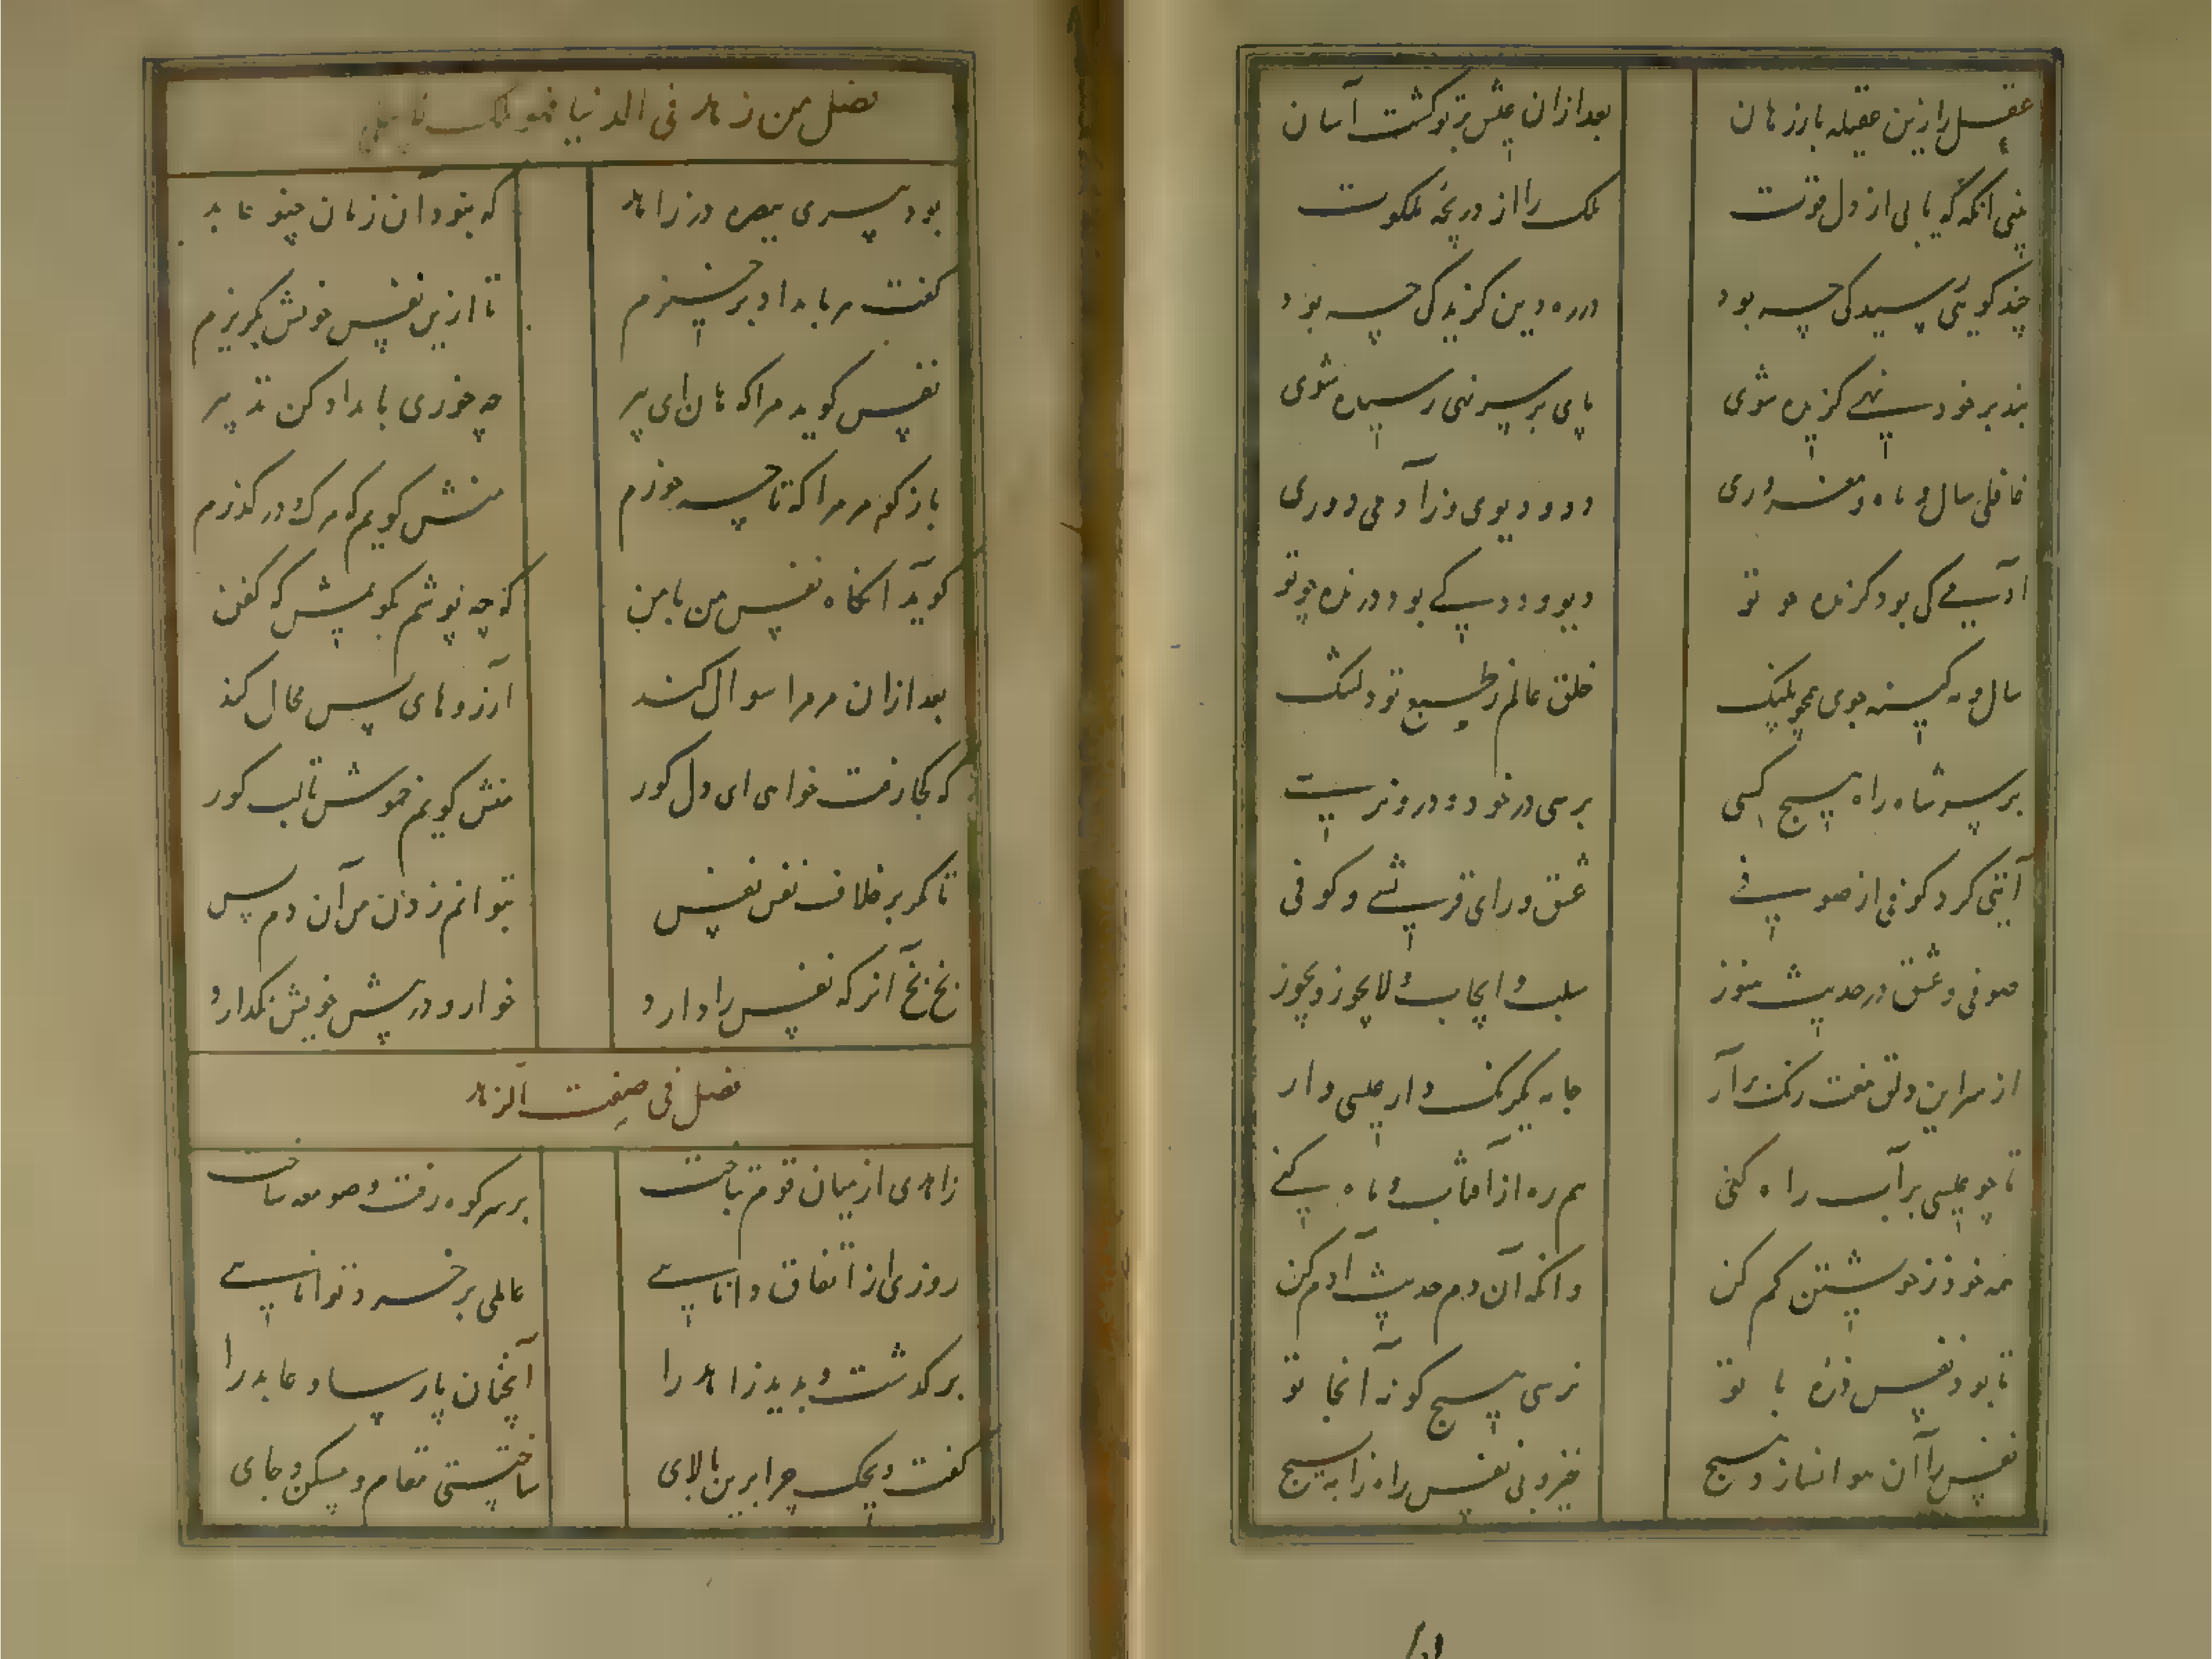 عقل را زین عقیله باز رهان
بعد ازان عیش بر تو گشت آسان
بینی آنگه که یابی از دل قوت
ملک را از دریچه ملکوت
چند گویی رسیدگی چه بود
در ره دین گزیدگی چه بود
بند بر خود نهی گزیده شوی
پای بر سر نهی رسیده شوی
غافلی سال و ماه و مغروری
دد و دیوی و ز آدمی دوری
آدمی کی بود گزنده چو تو
دیو و دد کی بود درنده چو تو
سال و مه کینه جوی همچو پلنگ
خلق عالم ز طبع تو دلتنگ
بر سر شاه راه هیچ کسی
برسی در خود و درو نرسی
آیتی کرد کوفی از صوفی
عشق و رای قریشی و کوفی
صوفی و عشق و در حدیث هنوز
سلب و ایجاب و لا یجوز و یجوز
از سر این دلق هفت رنگ برآر
جامه یکرنگ دار عیسی وار
تا چو عیسی بر آب راه کنی
همره از آفتاب و ماه کنی
همه خود ز خویشتن کم کن
وانگه آن دم حدیث آدم کن
تا بود نفس ذره با تو
نرسی هیچ گونه آنجا تو
نفس را آن هوا نسازد هیچ
خیز و بی نفس راه را بسیج
فصل من زهد فی الدنیا فهو ملک
بود پیری ببصره در زاهد
که نبود آن زمان چنو عابد
گفت هر بامداد برخیزم
تا ازین نفس خویش بگریزم
نفس گوید مرا که هان ای پیر
چه خوری بامداد کن تدبیر
باز گو مر مرا که تا چه خورم
منش گویم که مرگ و در گذرم
گوید آنگاه نفس من با من
که چه پوشم بگویمش که کفن
بعد ازان مر مرا سوال کند
آرزوهای بس محال کند
که کجا رفت خواهی ای دل کور
منش گویم خموش تا لب گور
تا مگر بر خلاف نفس نفس
بتوانم زدن من آن دم پس
بخ بخ آنرکه نفس را دارد
خوار و در پیش خویش نگذارد
فصل فی صفت الزهد
زاهدی از میان قوم بتاخت
بر سر کوه رفت و صومعه ساخت
روزی از اتفاق دانایی
عالمی پر خرد و توانایی
بر گذشت و بدید زاهد را
آنچنان پارسا و عابد را
گفت ویحک چرا برین بالای
ساختستی مقام و مسکن و جای